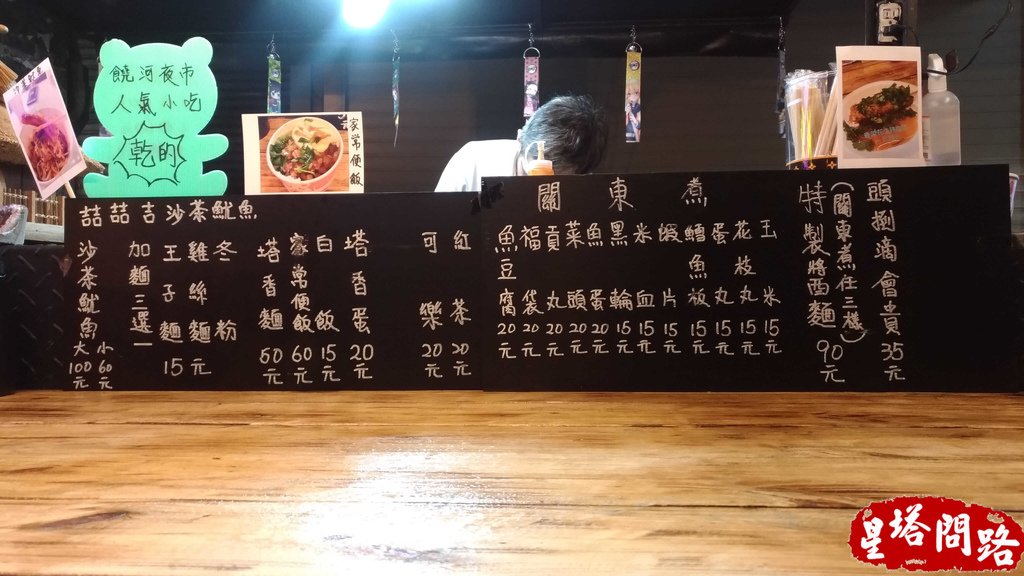 饒河夜市
人氣小吃
乾的
家常便飯
喆喆吉沙茶魷魚
沙茶魷魚 大100元 小60元
加麵三選一
王子麵
雞絲麵
冬粉
15元
塔香麵 50元
家常便飯 60元
白飯 15元
塔香蛋 20元
可樂 20元
紅茶 20元
關東煮
魚豆腐 20元
福袋 20元
貢丸 20元
菜頭 20元
魚蛋 20元
黑輪 15元
米血 15元
蝦片 15元
鱈魚板 15元
蛋丸 15元
花枝丸 15元
玉米 15元
特製將西麵 90元
(關東煮任三樣)
頭捌滴會貴 35元
星塔問路